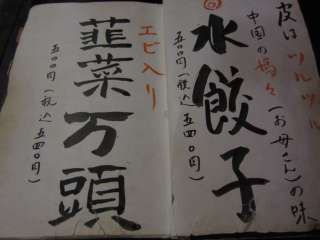 皮は ツルツル
中国の媽々(お母さん)の味
水餃子
五〇〇円(税込 五四〇円)
エビ入り
韮菜万頭
五〇〇円(税込 五四〇円)